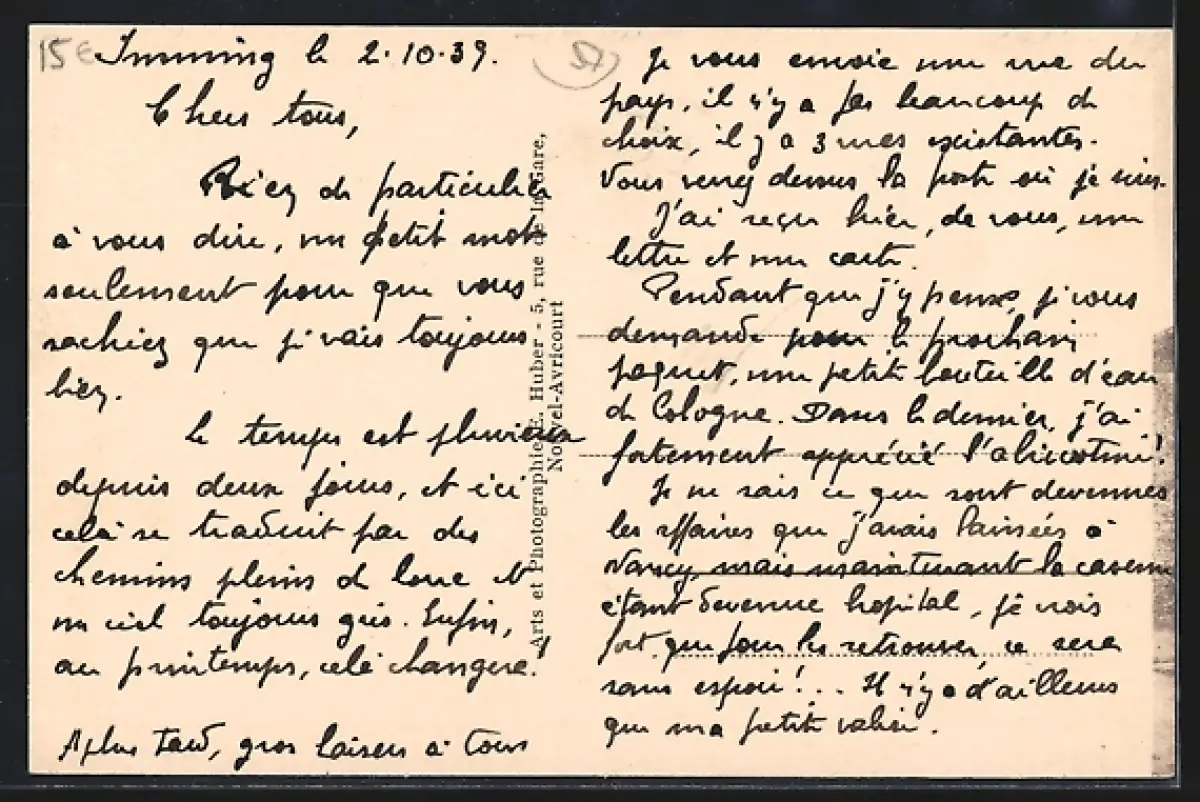 15€
Imming le 2.10.39.
Chers tous,
Rien de particulier
à vous dire, un petit mot
seulement pour que vous
sachiez que je vais toujours
bien.
Le temps est pluvieux
depuis deux jours, et ici
celà se traduit par des
chemins pleins de boue et
un ciel toujours gris. Enfin,
au printemps, celà changera!
A plus tard, gros baisers à tous
Arts et Photographie E. Huber - 5, rue de la Gare,
Nouvel-Avricourt
57
Je vous envoie une vue du
pays, il n'y a pas beaucoup de
choix, il y a 3 vues existantes.
Vous verrez dessus la poste où je suis.
J'ai reçu hier, de vous, une
lettre et une carte.
Pendant que j'y pense, je vous
demande pour le prochain
paquet, une petite bouteille d'eau
de Cologne. Dans le dernier, j'ai
fortement apprécié
Je ne sais ce que sont devenues
les affaires que j'avais laissées à
Nancy, mais maintenant la caserne
étant devenue hopital, je crois
fort que pour les retrouver, ce sera
sans espoir!... Il n'y a d'ailleurs
que ma petite valise.